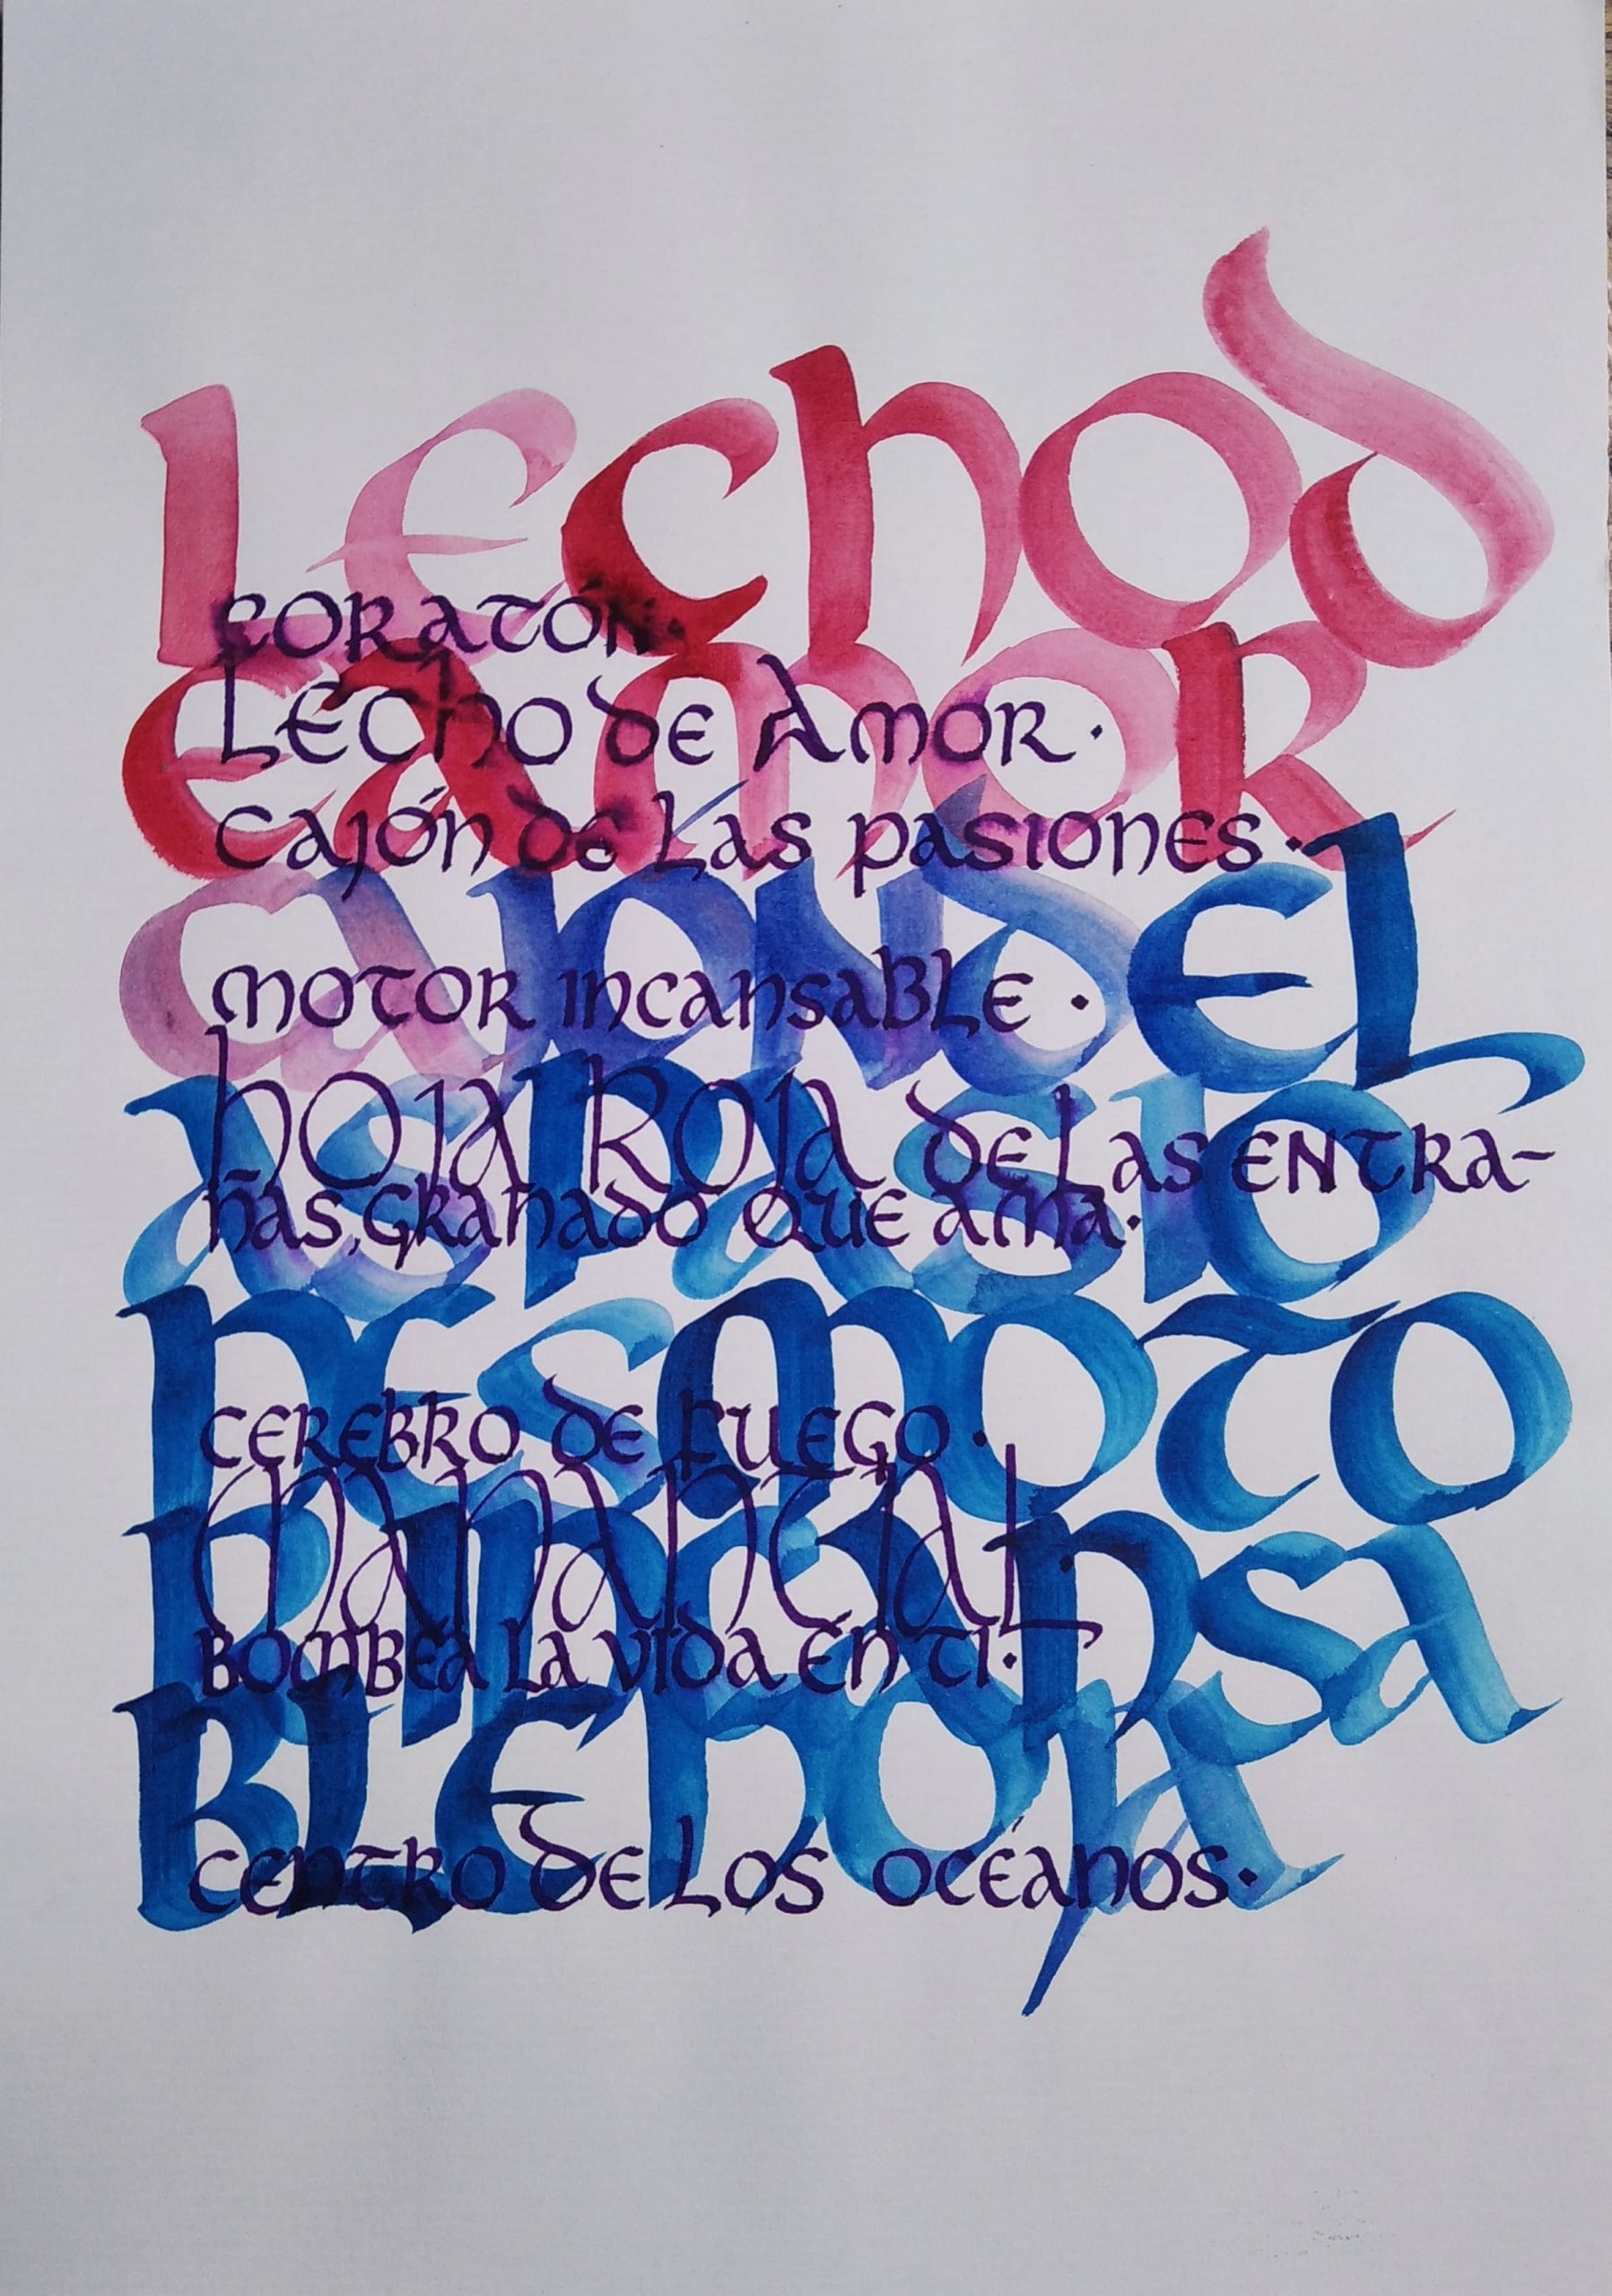 LECHOD
EAMOR
CAJONDEL
ASPASIO
NESMOTO
RINCANSA
BLEHOJA
CORATÓN.
LECHO DE AMOR.
CAJÓN DE LAS PASIONES.
MOTOR INCANSABLE.
HOJA ROJA DE LAS ENTRA-
ÑAS, GRANADO QUE AMA.
CEREBRO DE FUEGO.
MANANCIAL.
BOMBEA LA VIDA EN TI.
CENTRO DE LOS OCÉANOS.